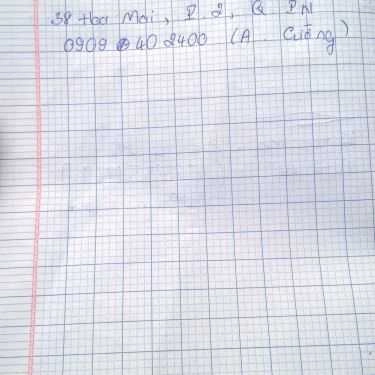 38 Hoa Mai, P.2, Q PN
0909 40 2400 (A. Cường)